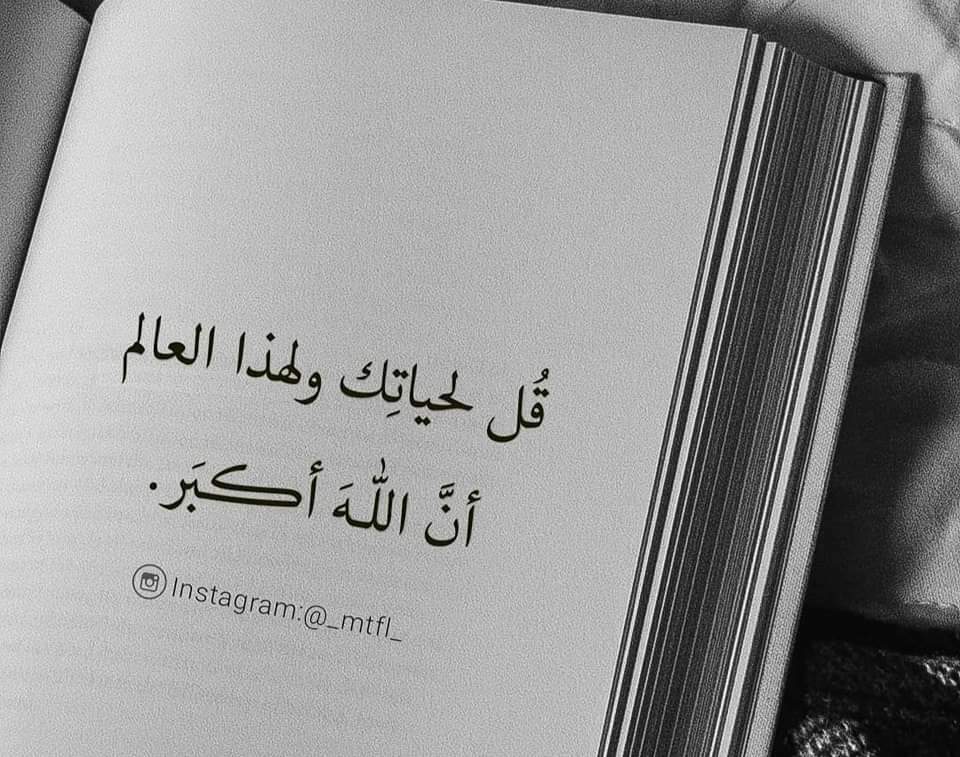 قُل لحياتِك ولهذا العالم
أنَّ اللّٰهَ أكبَر.
Instagram:@_mtfl_